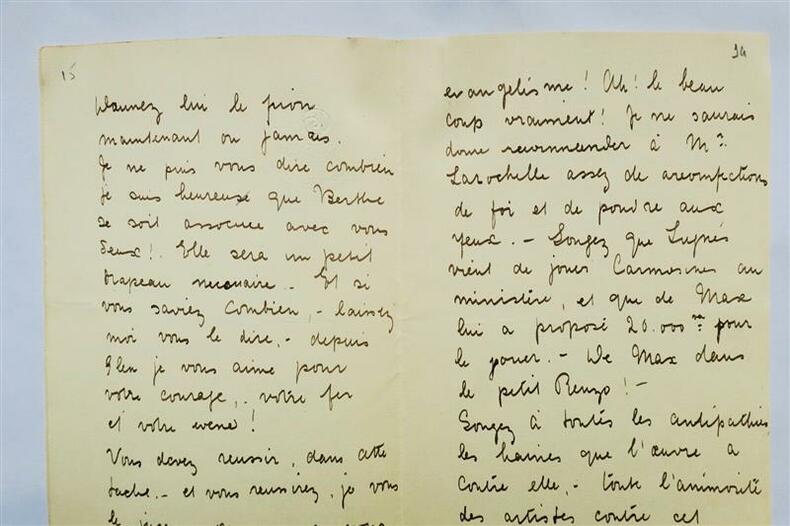 15
Donnez lui le
maintenant ou jamais.
Je ne puis vous dire combien
je suis heureuse que Berthe
se soit associee avec vous
deux! Elle sera un petit
drapeau necessaire. - Et si
vous saviez combien, - laissez
moi vous le dire, - depuis
je vous aime pour
votre courage, . votre fer
et votre
Vous devez reussir, dans cette
tache. - et vous reussirez, je vous
le
34
evangelisme! Ah! le beau
coup vraiment! Je ne saurais
donc recommander à Mr
Larochelle assez de
de foi et de poudre aux
yeux. - Songez que Lugné
vient de jouer Carmosine au
ministère, et que de Max
lui a proposé 20.000 pour
le jouer. - De Max dans
le petit Renzo! -
Songez à toutes les antipathies
les haines que l'œuvre a
contre elle, - toute l'animosité
des artistes contre cet